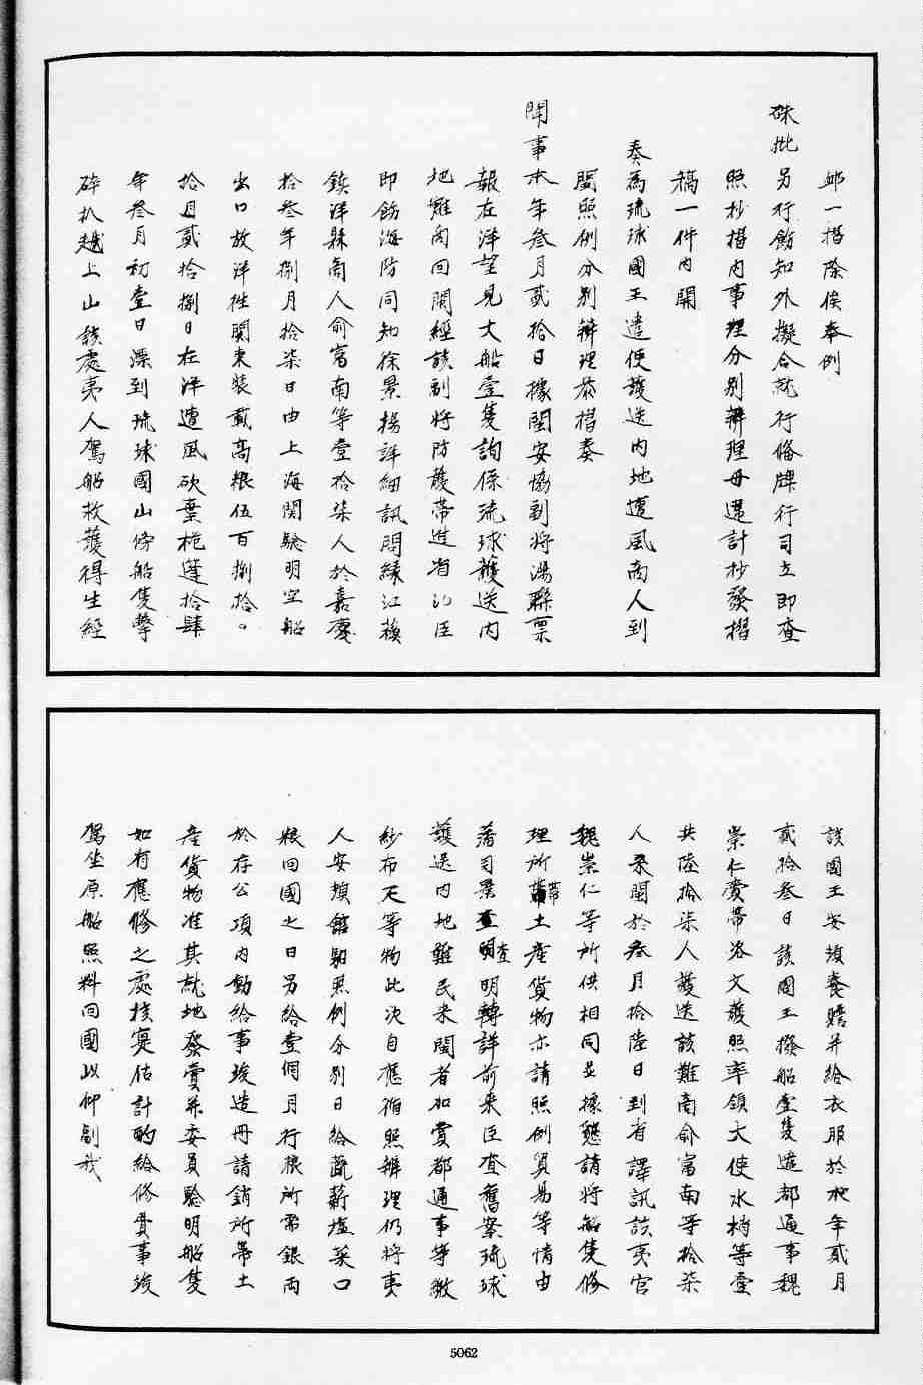 卹一摺除俟奉例
硃批另行飭知外擬合就行脩牌行司立即查
照抄摺内事理分别辦理毋違計抄發摺
稿一件内開
奏為琉球國王遣使護送内地遭風商人到
閩照例分别辦理恭摺奏
聞事本年叁月貳拾日據閩安協副將湯聯票
報在洋望見大船壹隻詢係琉球護送内
地難商回閩經該副將防護帶進省河臣
即飭海防同知徐景揚詳細訊問緣江蘇
鎮洋縣商人俞富南等壹拾柒人於嘉慶
拾叁年捌月拾柒日由上海關驗明空船
出口放洋往關東装載高粮伍百捌拾。
拾月貳拾捌日在洋遭風砍棄桅蓬拾肆
年叁月初壹日漂到琉球國山傍船隻擊
碎扒越上山該處夷人駕船救護得生經
該國王安頓養贍并給衣服於秋年貳月
貳拾叁日該國王撥船壹隻遣都通事魏
崇仁賫帶咨文護照率領大使水梢等壹
共陸拾柒人護送該難商俞富南等拾柒
人來閩於叁月拾陸日到省譯訊該夷官
魏崇仁等所供相同並據懇請將船隻修
理所帶土産貨物亦請照例貿易等情由
藩司景查明轉詳前來臣查舊案琉球
護送内地難民來閩者加賞都通事等緞
紗布疋等物此次自應循照辦理仍將夷
人安頓館驛照例分别日給蔬薪塩菜口
粮回國之日另給壹個月行粮所需銀両
於存公項内動給事竣造册請銷所帶土
産貨物准其就地發賣并委員驗明船隻
如有應修之處核寔估計酌給修費事竣
駕坐原船照料回國以仰副我
5062